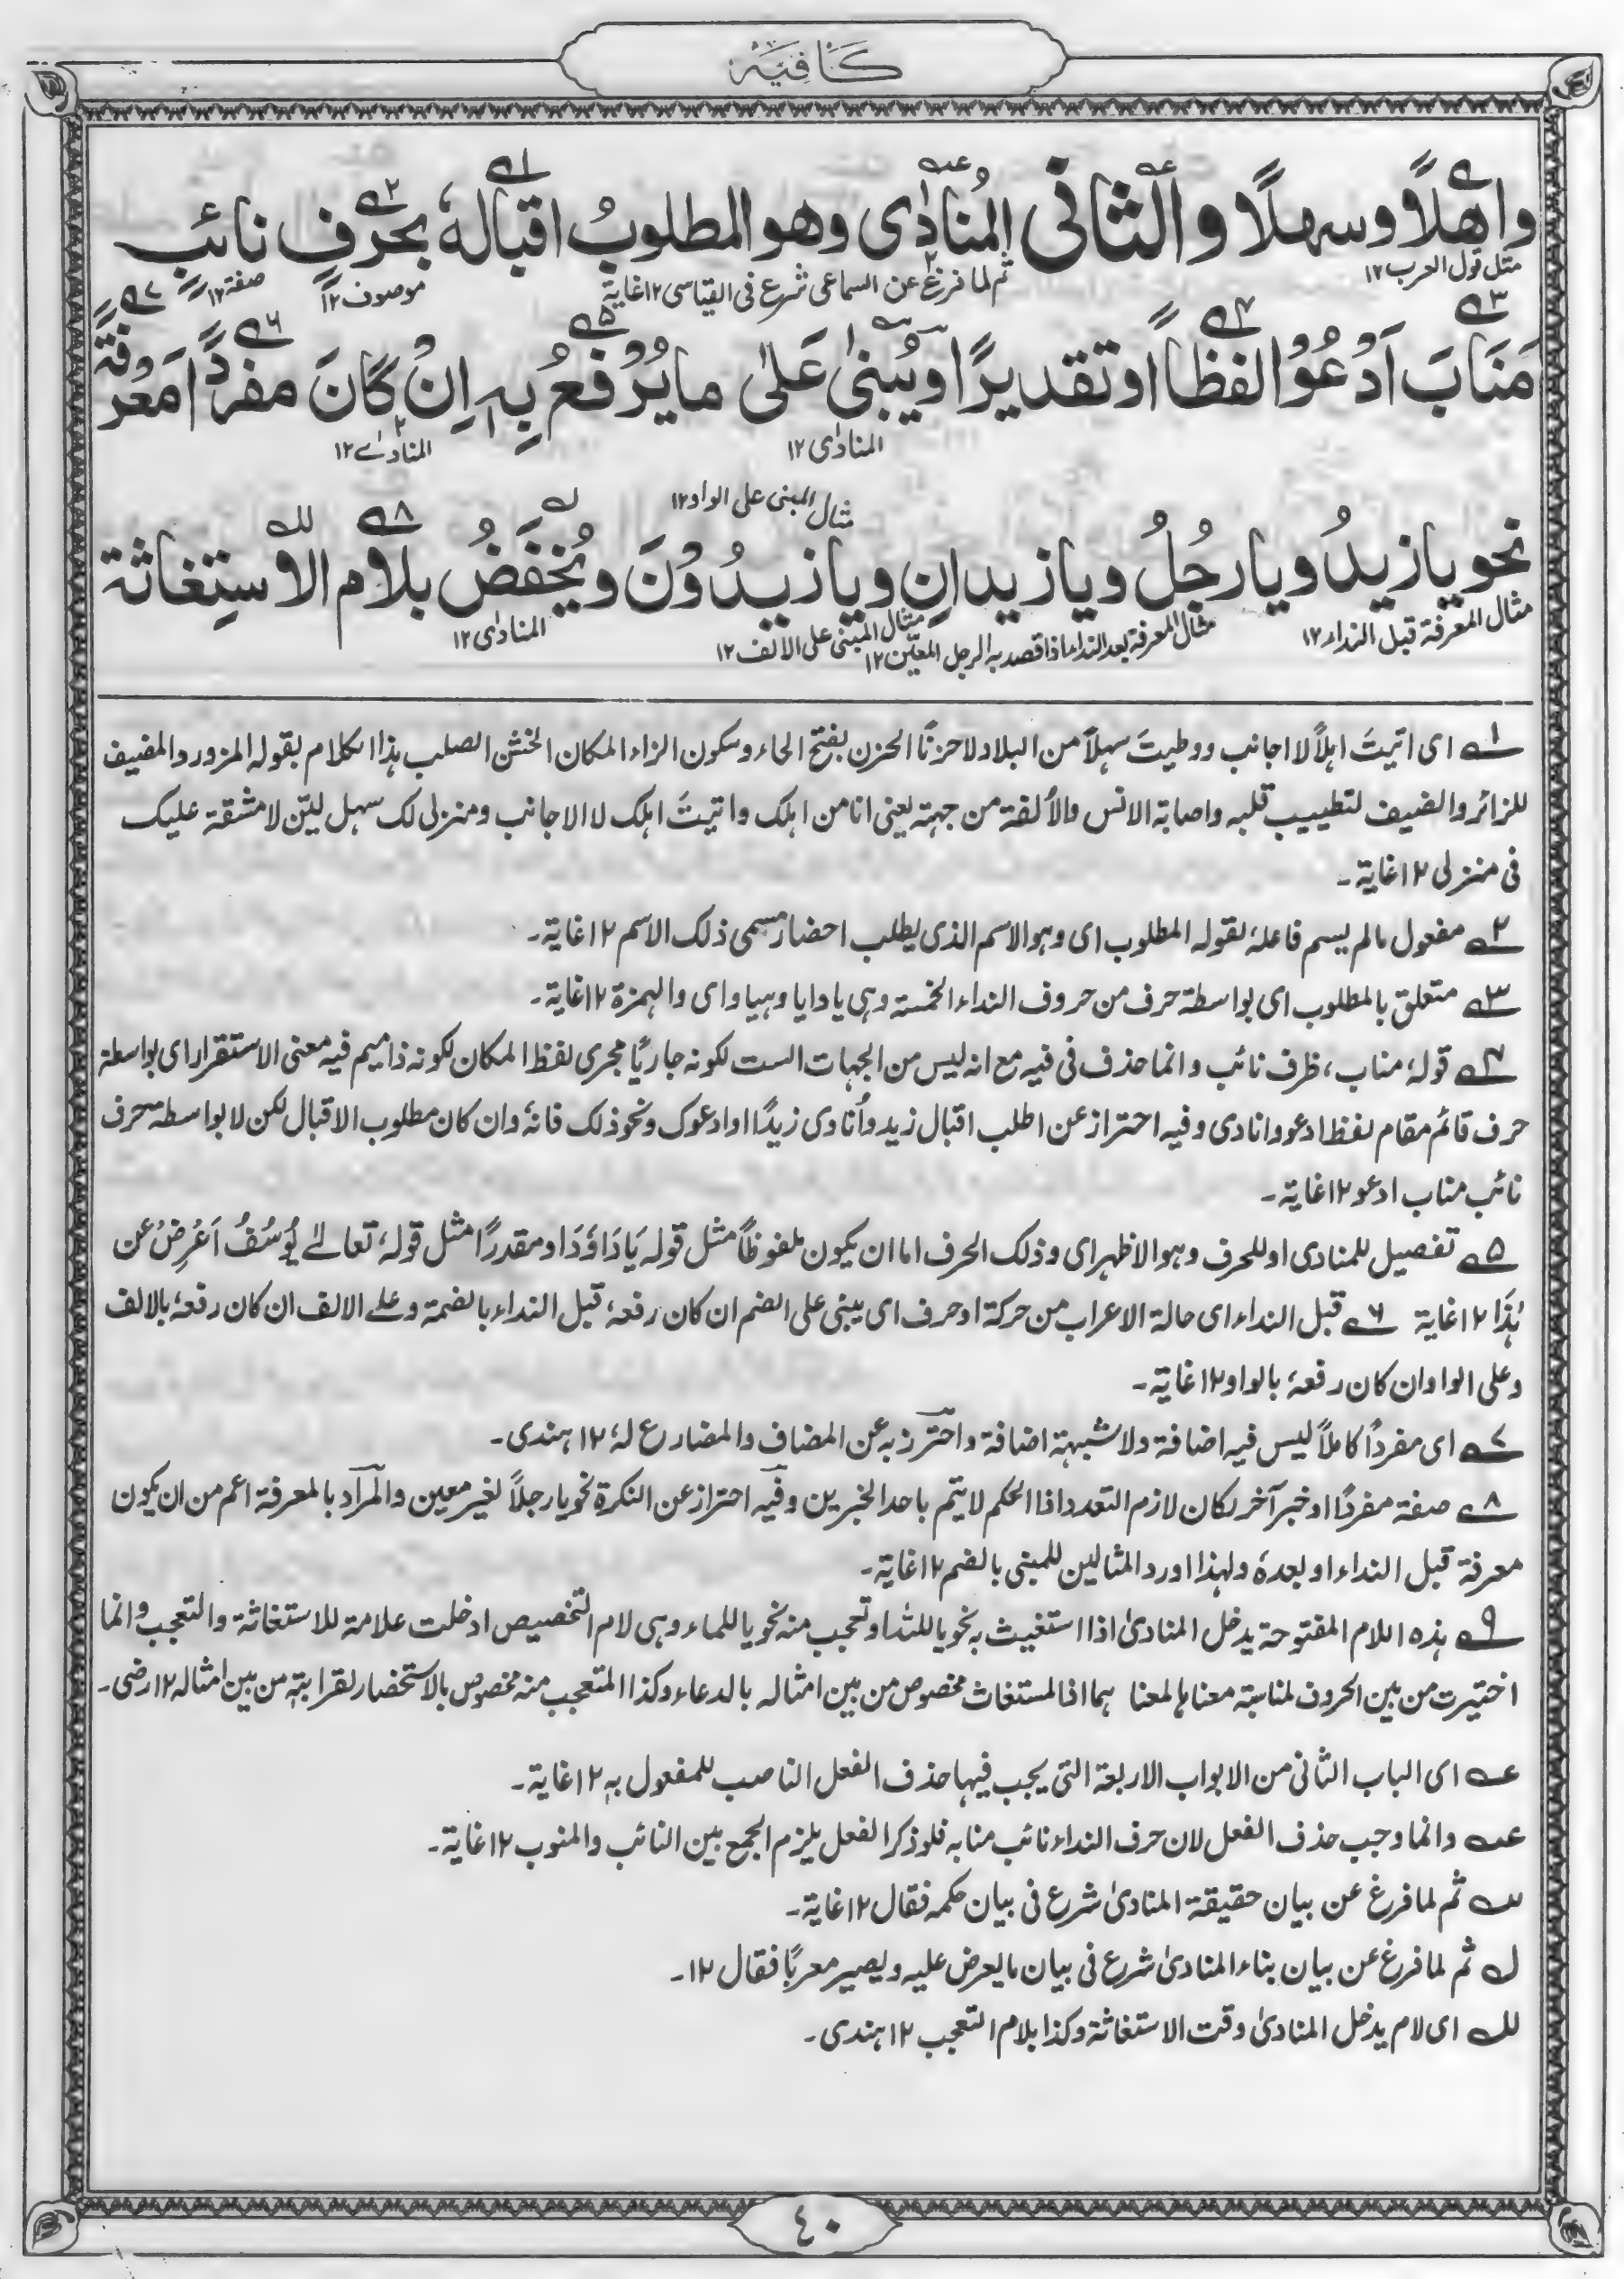 كَافِيَة
واَهلاً وسهلاً والثانی المُنادٰی وهو المطلوبُ اقبالهٗ بحرفٍ نائبٍ
مثل قول العرب ١٢
ثم لما فرغ عن السماعی شرع فی القیاسی ١٢ غایة
موصوف ١٢
صفة ١٢
مَنَابَ اَدْعُوْ لفظاً او تقدیرًا ویُبنٰی عَلٰی ما یُرْفعُ بِهٖ اِنْ کَانَ مفردًا مَعْرِفَةً
المنادٰی ١٢
المنادٰے ١٢
مثال المبنی علی الواو ١٢
نحو یا زیدُ ویا رجُلُ ویا زیدانِ ویا زیدُوْنَ ویُخْفَضُ بلام الاستِغاثة
مثال المعرفة قبل النداء ١٢
مثال المعرفة بعد النداء اذا قصد به الرجل المعیّن ١٢
مثال المبنی علی الالف ١٢
المنادٰی ١٢
١ــه ای اتیتَ اہلاً لا اجانب ووطیتَ سہلاً من البلاد لا حزنًا الحزن بفتح الحاء وسکون الزاء المکان الخشن الصلب ہذا الکلام یقوله المزور والمضیف
للزائر والضیف لتطییب قلبه واصابة الانس والاُلفة من جہته یعنی انا من اہلک واتیتَ اہلک لا الاجانب ومنزلی لک سہل لیّن لا مشقة علیک
فی منزلی ١٢ غایة۔
٢ــه مفعول مالم یسم فاعلهٗ لقوله المطلوب ای وہو الاسم الذی یطلب احضار مسمی ذلک الاسم ١٢ غایة۔
٣ــه متعلق بالمطلوب ای بواسطة حرف من حروف النداء الخمسة وہی یا وایا وہیا وای والہمزة ١٢ غایة۔
٤ــه قولهٗ مناب، ظرف نائب وانما حذف فی فیه مع انه لیس من الجہات الست لکونه جاریًا مجری لفظ المکان لکونه ذا میم فیه معنی الاستقرار ای بواسطة
حرف قائم مقام لفظ ادعو وانادی وفیه احتراز عن اطلب اقبال زید واُنادی زیدًا او ادعوک ونحو ذلک فانهٗ وان کان مطلوب الاقبال لکن لا بواسطة حرف
نائب مناب ادعو ١٢ غایة۔
٥ــه تفصیل للمنادی او للحرف وہو الاظہر ای وذلک الحرف اما ان یکون ملفوظاً مثل قوله یَادَاوٗدَ او مقدرًا مثل قولهٗ تعالےٰ یُوْسُفُ اَعْرِضْ عن
ہٰذَا ١٢ غایة ٦ــه قبل النداء ای حالة الاعراب من حرکة او حرف ای یبنی علی الضم ان کان رفعهٗ قبل النداء بالضمة وعلے الالف ان کان رفعهٗ بالالف
وعلی الواو ان کان رفعهٗ بالواو ١٢ غایة۔
٧ــه ای مفردًا کاملاً لیس فیه اضافة ولا شبہة اضافة واحترز به عن المضاف والمضارع لهٗ ١٢ ہندی۔
٨ــه صفة مفردًا او خبر آخر لکان لازم التعدد اذا الحکم لا یتم باحد الخبرین وفیه احتراز عن النکرة نحو یا رجلاً لغیر معین والمراد بالمعرفة اعم من ان یکون
معرفة قبل النداء او بعدهٗ ولہذا اورد المثالین للمبنی بالضم ١٢ غایة۔
٩ــه ہذه اللام المفتوحة یدخل المنادیٰ اذا استغیث به نحو یا للّٰه او تعجب منه نحو یا للماء وہی لام التخصیص ادخلت علامة للاستغاثة والتعجب وانما
اختیرت من بین الحروف لمناسبة معناہا لمعنا ہما اذا المستغاث مخصوص من بین امثاله بالدعاء وکذا المتعجب منه مخصوص بالاستحضار لغرابته من بین امثاله ١٢ رضی۔
عــه ای الباب الثانی من الابواب الاربعة التی یجب فیہا حذف الفعل الناصب للمفعول بهٖ ١٢ غایة۔
عــه وانما وجب حذف الفعل لان حرف النداء نائب منابه فلو ذکر الفعل یلزم الجمع بین النائب والمنوب ١٢ غایة۔
ســه ثم لما فرغ عن بیان حقیقة المنادیٰ شرع فی بیان حکمه فقال ١٢ غایة۔
لــه ثم لما فرغ عن بیان بناء المنادیٰ شرع فی بیان ما یعرض علیه ویصیر معربًا فقال ١٢۔
للــه ای لام یدخل المنادیٰ وقت الاستغاثة وکذا بلام التعجب ١٢ ہندی۔
٤٠